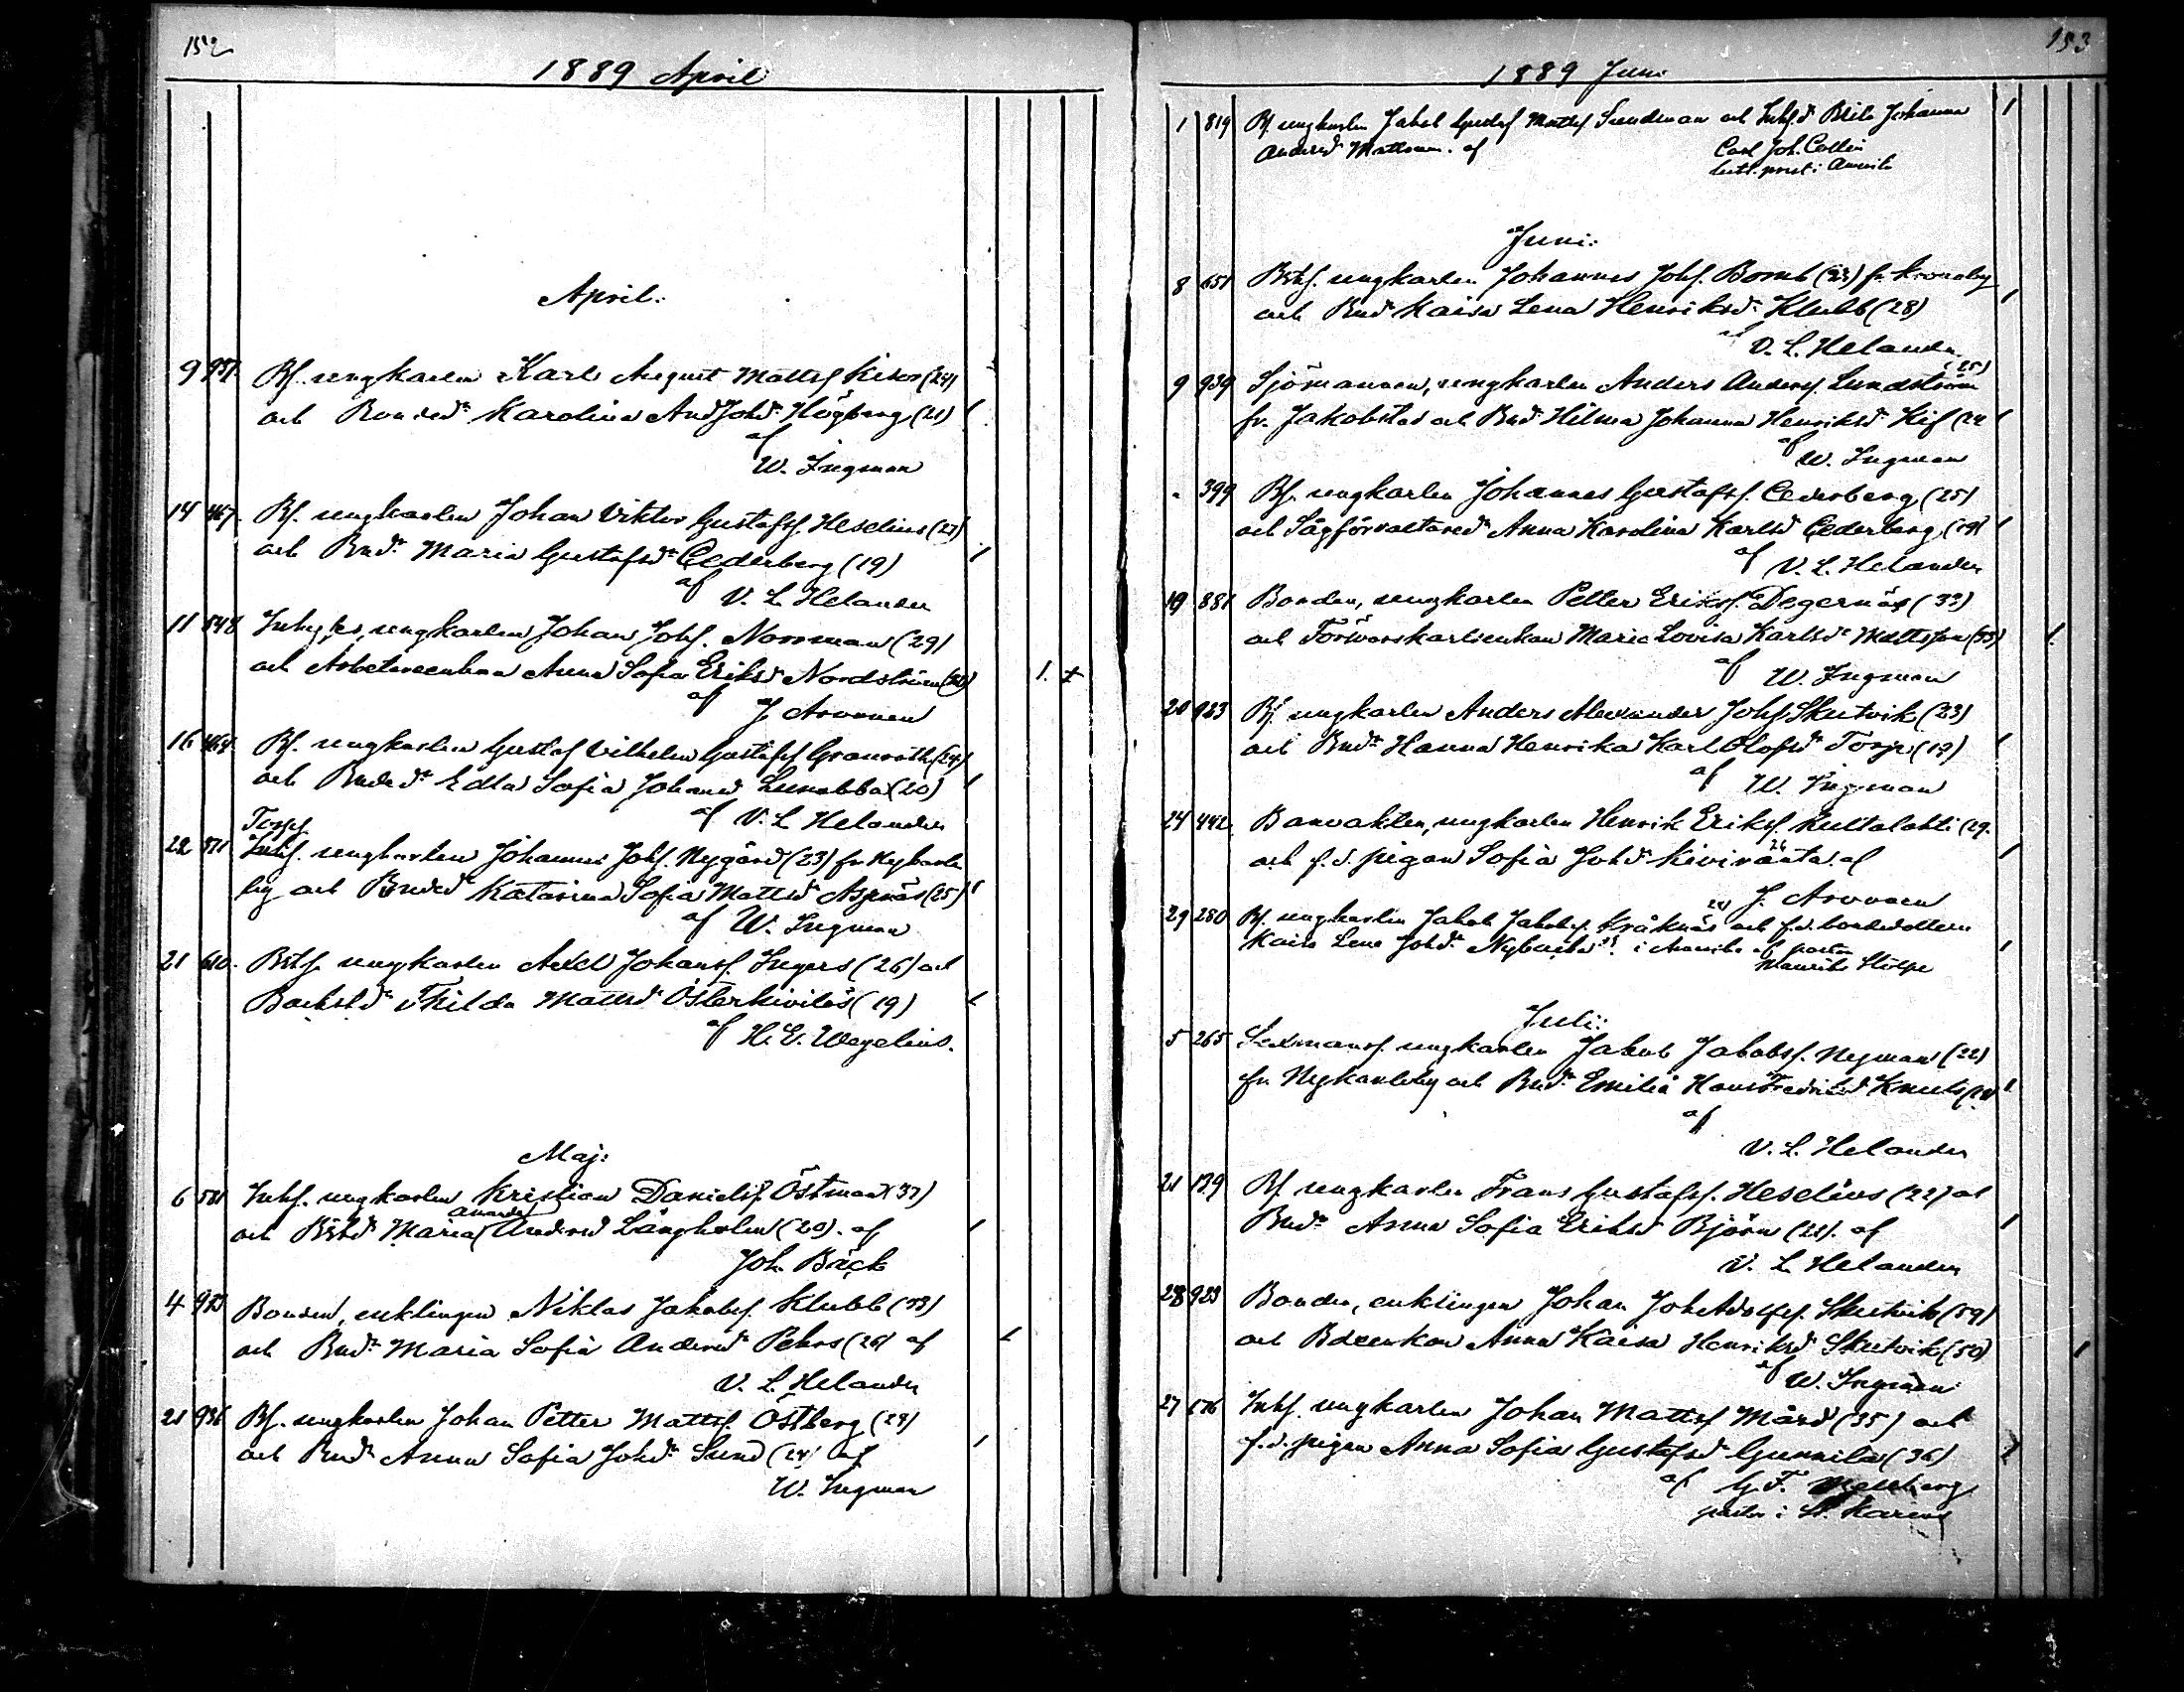 152
1889 April
April:
9 951 Bf. ungkarlen Karl August Mattsf. Kisor (24)
och Bonded. Karolina And Johd. Högberg (21)
af
W. Ingman
14 467. Bf. ungkarlen Johan Viktor Gustafsf. Heselius (27)
och Bndr. Maria Gustafsd. Cederberg (19)
af
V. L. Helander
11 548 ungkarlen Johan Johsf. Norrman (29)
och Arbetareenkan Anna Sofia Eriksd. Nordström
af
J. Arvonen
16 Bf. ungkarlen Gustaf Vilhelm Gustafsf. Granroth (24)
och Bnded. Edla Sofia Johansd. Lunabba (20)
af V. L. Helander
Torpf.
22 571 Inhf. ungkarlen Johannes Johsf. Nygård (23) fr. Nykarle
by och Bnded. Katarina Sofia Mattsd. Aspnäs (25)
af W. Ingman
21 610. ungkarlen Axel Johansf. Ingers (26) och
Backstd. Thilda Mattsd. Österkivilös (19)
af H. E. Wegelius.
Maj:
6 581 Inhf. ungkarlen Kristian Danielsf. Östman (37)
Amanda
och Maria Andersd. Långholm (20). af
Joh. Bäck
4 923 Bonden, enklingen Niklas Jakobsf. Klubb (33)
och Bndr. Maria Sofia Andersd. Pehrs (26) af
V. L. Helander
21 936 Bf. ungkarlen Johan Petter Mattsf. Östberg (24)
och Bndr. Anna Sofia Johd. Sund (24) af
W. Ingman
153
1889 Juni
1 819 Bf. ungkarlen Jakob Gustaf Mattsf. Sundman och Inhf.d. Brita Johanna
Andersd. Mattsson. af Carl Joh. Collin
luth. prest i Amerika
Juni:
8 651 ungkarlen Johannes Johsf. Bomb (23) fr. Kronoby
och Bnd. Kaisa Lena Henriksd. Klubb (28)
af
V. L. Helander
(25)
9 939 Sjömannen, ungkarlen Anders Andersf. Lundström
fr. Jakobstad och Bnd. Hilma Johanna Henriksd. Kif (22
af
W. Ingman
" 399 Bf. ungkarlen Johannes Gustafsf. Cederberg (25)
och Sågförvaltared. Anna Karolina Karlsd. Cederberg (19)
af V. L. Helander
19 881 Bonden, ungkarlen Petter Eriksf. Degernäs (33)
och Torivarskarlsenkan Maria Lovisa Karlsd. Mattsson (33)
af
W. Ingman
20 923 Bf. ungkarlen Anders Alexander Johsf. Skutvik (23)
och Bndr. Hanna Henrika Karl Olofsd. Torp (19)
af
W. Ingman
24 442 Banvakten, ungkarlen Henrik Eriksf. Kultalahti (29.
26
och f.d. pigan Sofia Johd. Kiviranta. af
J. Arvonen
24
29 280 Bf. ungkarlen Jakob Jakobsf. Kråknäs och f.d. bondedottern
Kaisa Lena Johd. Nybacka i Amerika af pastor
Mauritz Stolpe
Juli:
5 265 Sexmansf. ungkarlen Jakob Jakobsf. Nyman (22)
fr. Nykarleby och Bndr. Emilia Hans Fredriksd. Knuts
af
V. L. Helander
21 139 Bf. ungkarlen Frans Gustafsf. Heselius (22) och
Bndr. Anna Sofia Eriksd. Björn (21). af
V. L. Helander
28 923 Bonden, enklingen Johan Joh Adolfsf. Skutvik (59)
och Anna Kaisa Henriksd. Skutvik (50)
af W. Ingman
27 Inhf. ungkarlen Johan Mattsf. Mård (35) och
f.d. pigan Anna Sofia Gustafsd. Gunnila (36)
af G. F.
pastor i St. Karins